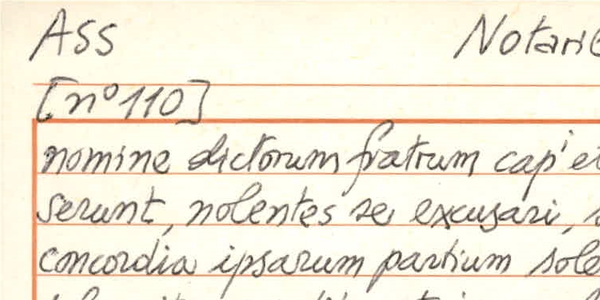 Ass
[nº 110]
nomine dictorum fratrum cap' et
serunt, nolentes se excusari,
concordia ipsarum partium